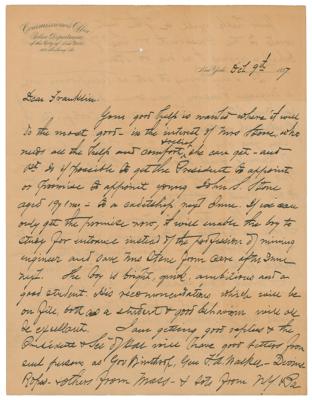 Commissioner's Office
Police Department
of the City of New York
New York, Oct. 9th 1897
Dear Franklin:
Your good help is wanted where it will
do the most good - in the interest of Mrs Stone, who
needs all the help and comfort she can get - and
it is if possible to get the President to appoint
or promise to appoint young John S. Stone
aged 19 - to a cadetship next June. If we can
only get the promise now, it will enable the boy to
study for entrance instead of the profession of mining
engineer and save Mrs Stone from care after June
next. The boy is bright, quick, ambitious and a
good student. His recommendations which will be
on file, both as a student & good behavior will all
be excellent. I am getting good replies & the
President & Sec of War will have good letters from
such persons as Gov Winthrop, Gen F A Walker -
others from Mass - & lots from N.Y.